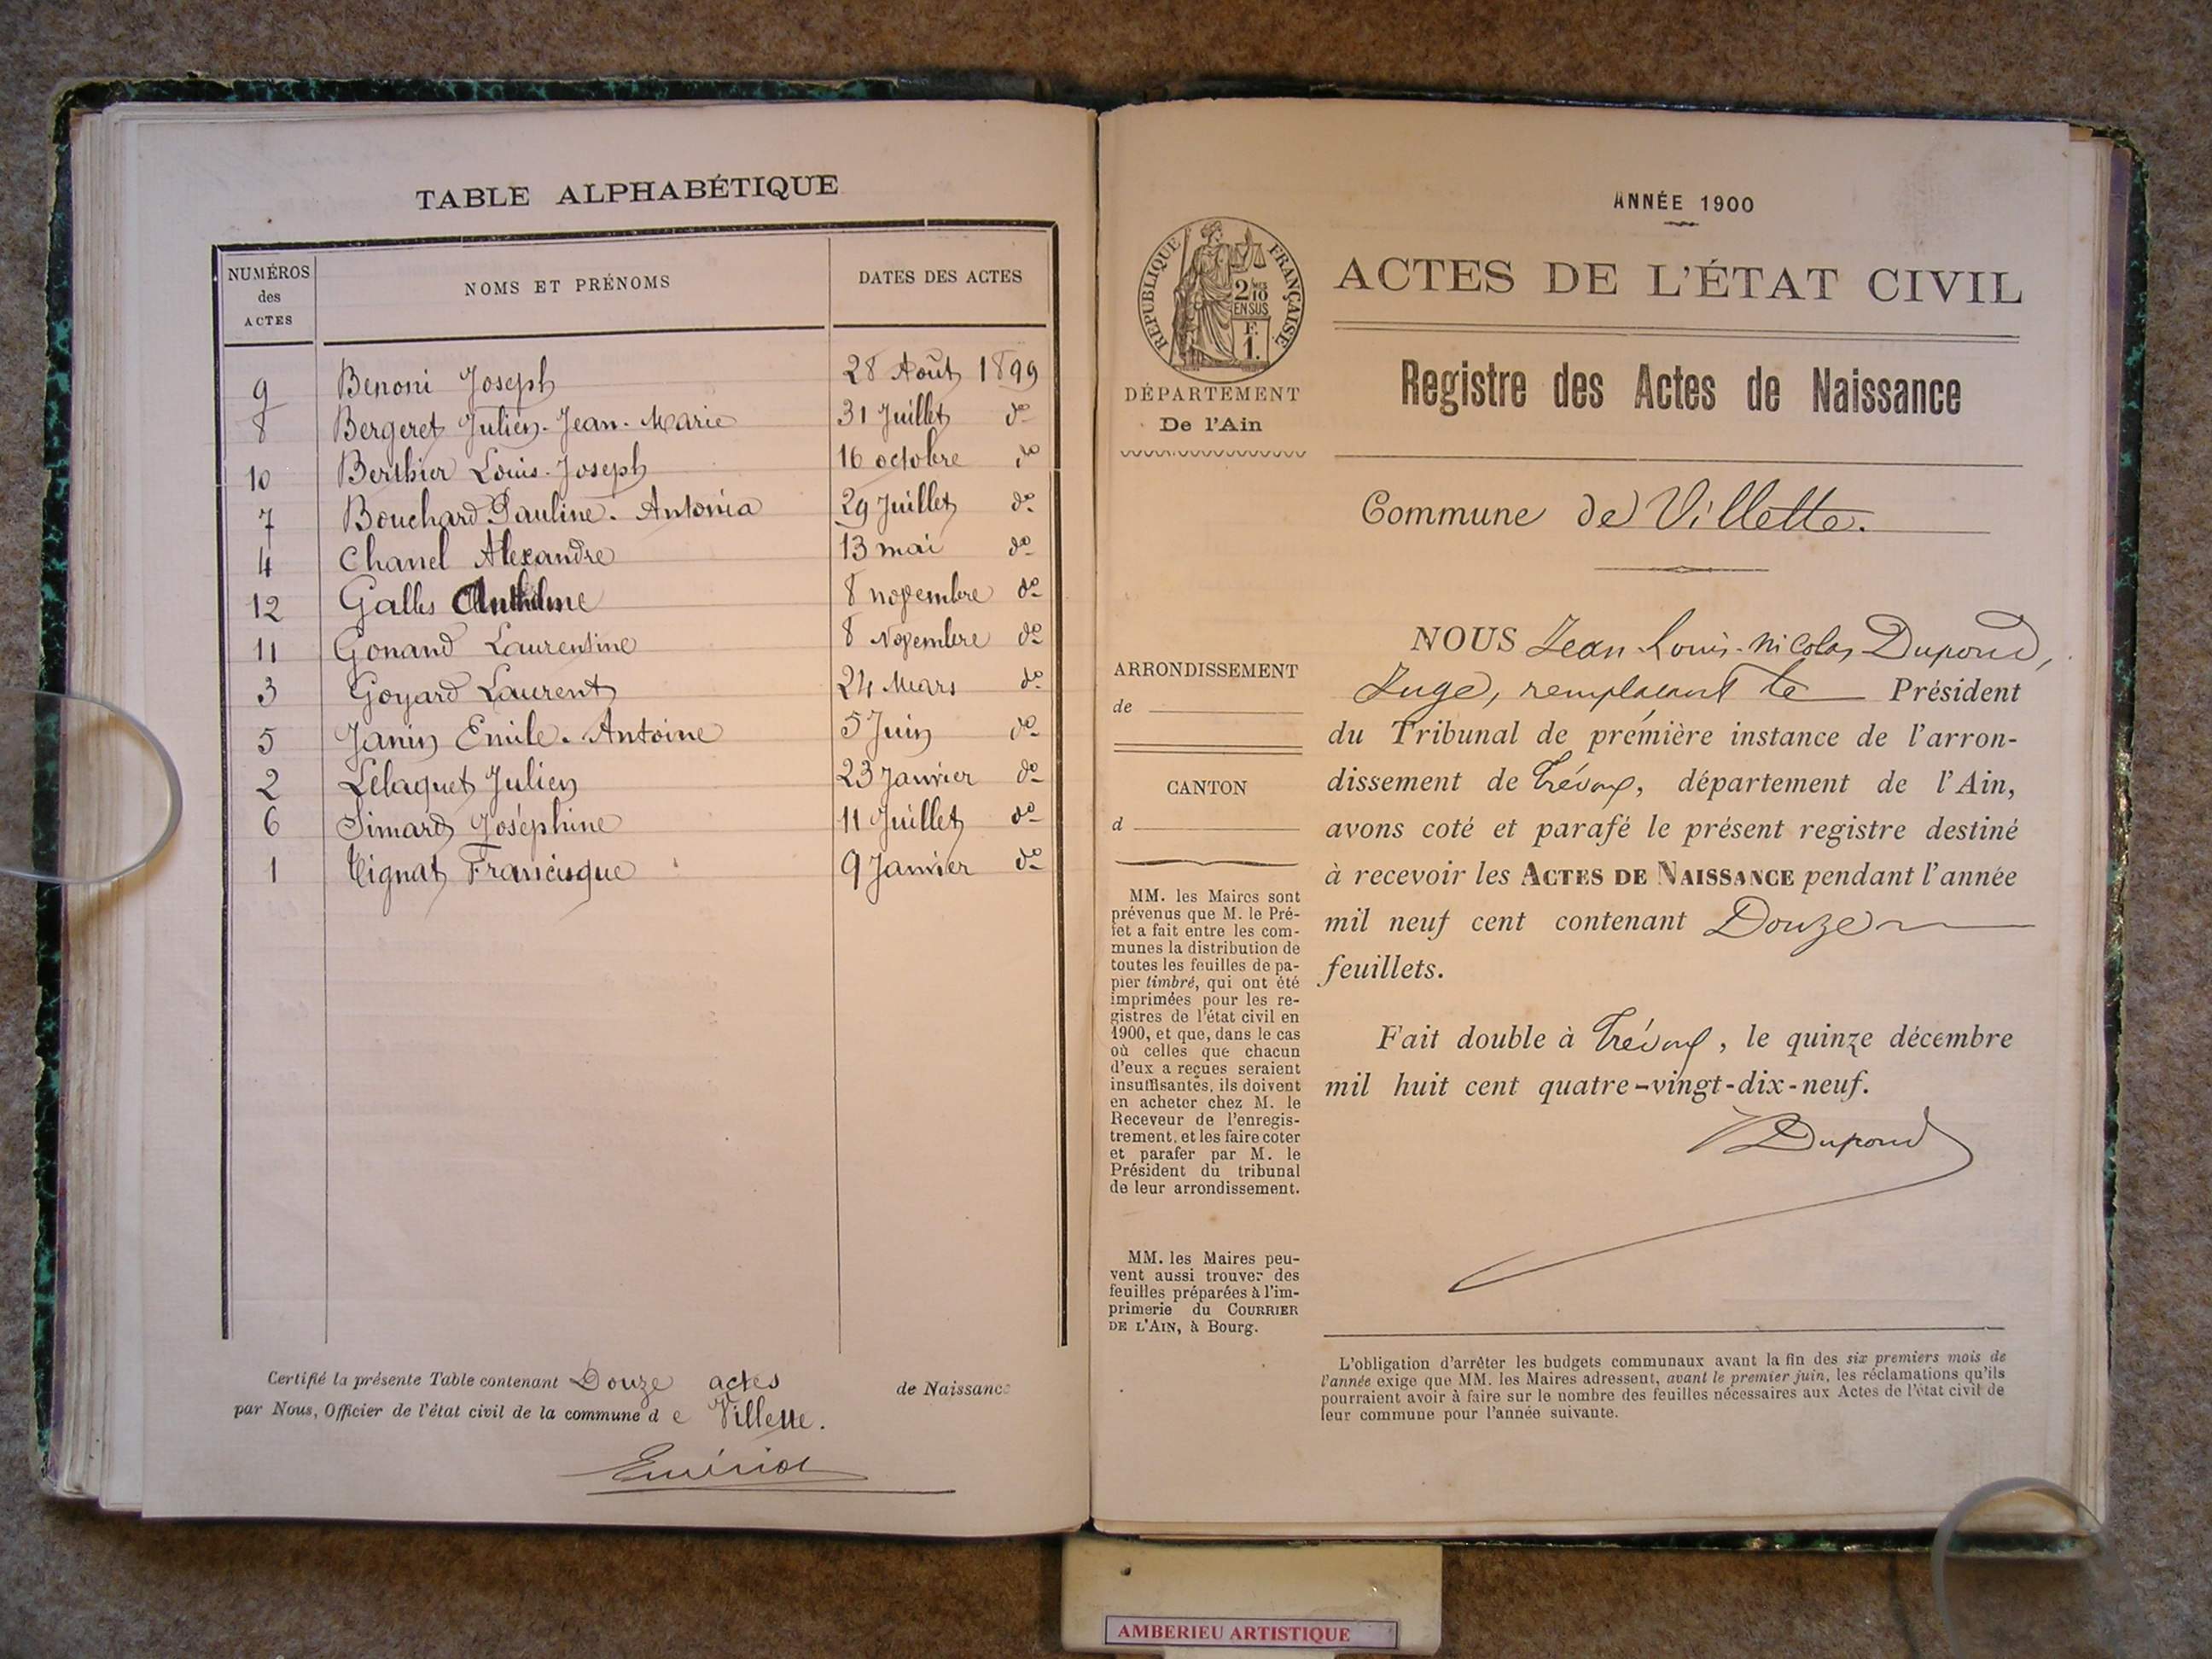 TABLE ALPHABÉTIQUE
NUMÉROS des ACTES NOMS ET PRÉNOMS DATES DES ACTES
9 Benoni Joseph 28 Août 1899
8 Bergeret Julien-Jean-Marie 31 Juillet do
10 Berthier Louis-Joseph 16 octobre do
7 Bouchard Pauline-Antonia 29 Juillet do
4 Chanel Alexandre 13 mai do
12 Galles Anthelme 8 novembre do
11 Gonand Laurentine 8 Novembre do
3 Goyard Laurent 24 Mars do
5 Janin Emile-Antoine 5 Juin do
2 Lelaquet Julien 23 Janvier do
6 Simard Joséphine 11 Juillet do
1 Tignat Francisque 9 Janvier do
Certifié la présente Table contenant Douze actes de Naissance
par Nous, Officier de l'état civil de la commune de Villette.
ANNÉE 1900
RÉPUBLIQUE FRANÇAISE
2/10
EN SUS
F.
1.
DÉPARTEMENT
De l'Ain
ACTES DE L'ÉTAT CIVIL
Registre des Actes de Naissance
Commune de Villette.
ARRONDISSEMENT
de
CANTON
d
MM. les Maires sont
prévenus que M. le Pré-
fet a fait entre les com-
munes la distribution de
toutes les feuilles de pa-
pier timbré, qui ont été
imprimées pour les re-
gistres de l'état civil en
1900, et que, dans le cas
où celles que chacun
d'eux a reçues seraient
insuffisantes, ils doivent
en acheter chez M. le
Receveur de l'enregis-
trement, et les faire coter
et parafer par M. le
Président du tribunal
de leur arrondissement.
MM. les Maires peu-
vent aussi trouver des
feuilles préparées à l'im-
primerie du COURRIER
DE L'AIN, à Bourg.
NOUS Jean-Louis-Nicolas Dupond,
Juge, remplaçant le Président
du Tribunal de première instance de l'arron-
dissement de Trévoux, département de l'Ain,
avons coté et parafé le présent registre destiné
à recevoir les ACTES DE NAISSANCE pendant l'année
mil neuf cent contenant Douze
feuillets.
Fait double à Trévoux, le quinze décembre
mil huit cent quatre-vingt-dix-neuf.
Dupond
L'obligation d'arrêter les budgets communaux avant la fin des six premiers mois de
l'année exige que MM. les Maires adressent, avant le premier juin, les réclamations qu'ils
pourraient avoir à faire sur le nombre des feuilles nécessaires aux Actes de l'état civil de
leur commune pour l'année suivante.
AMBERIEU ARTISTIQUE